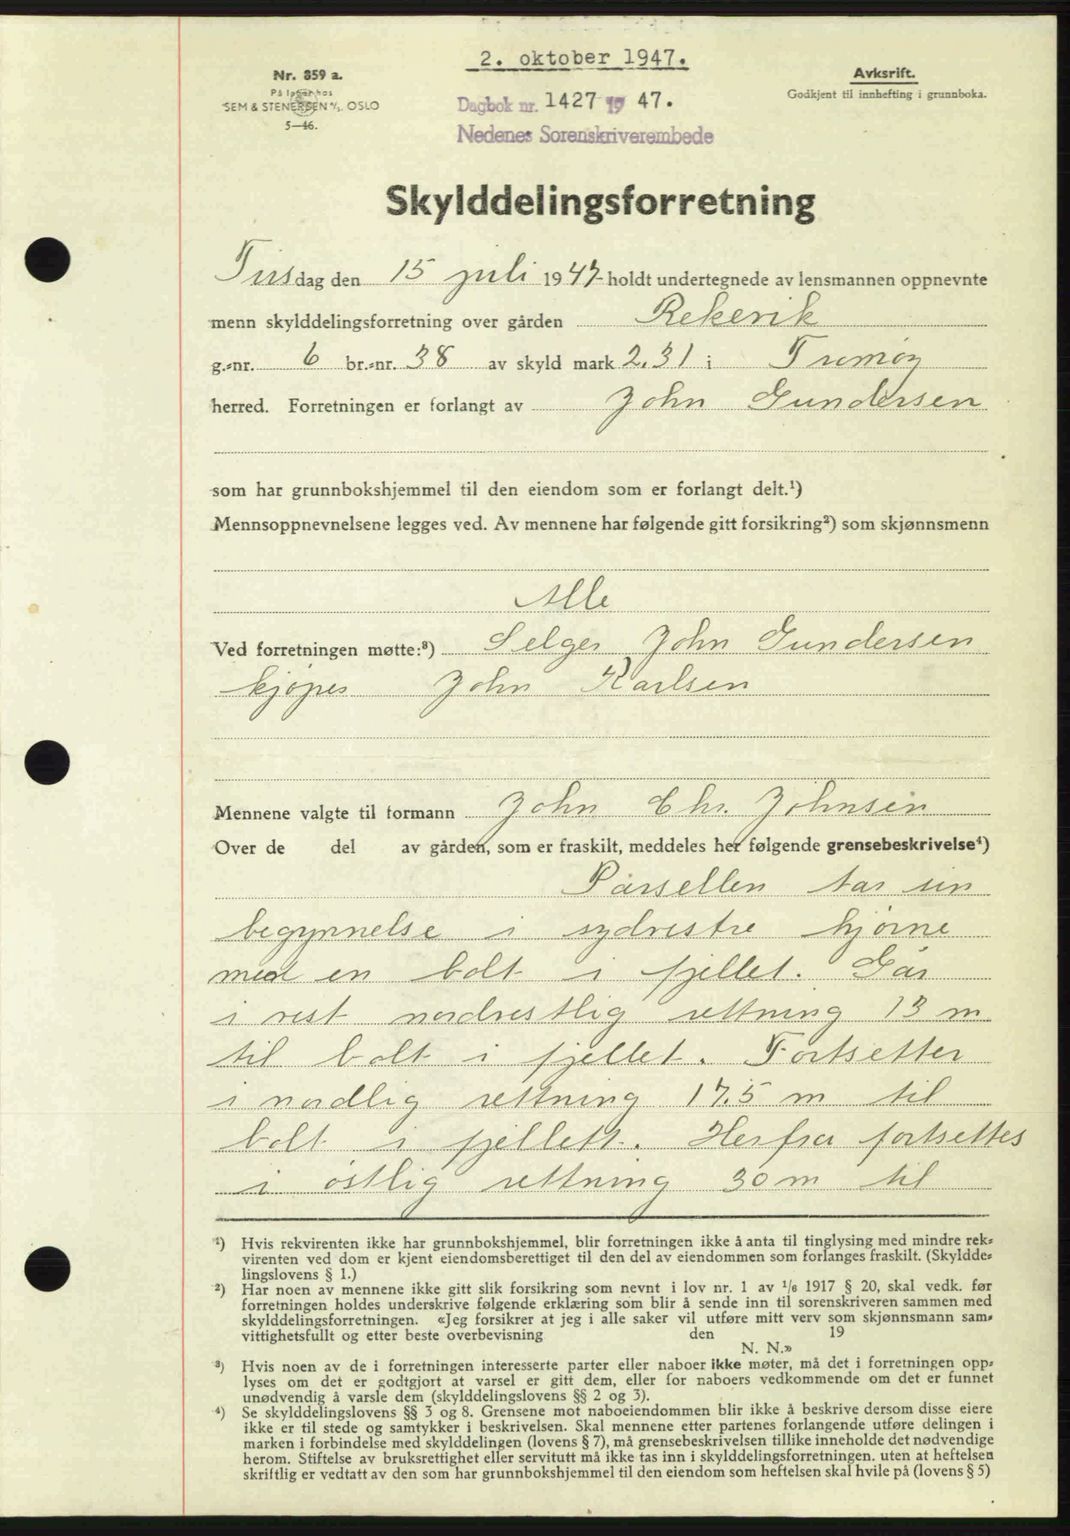 2. oktober 1947.
Nr. 859 a.
På lager hos
SEM & STENERSEN A/S. OSLO
5—46.
Avksrift.
Godkjent til innhefting i grunnboka.
Dagbok nr. 1427 19 47.
Nedenes Sorenskriverembede
Skylddelingsforretning
Tirsdag den 15 juli 1947 holdt undertegnede av lensmannen oppnevnte
menn skylddelingsforretning over gården Rekevik
g.-nr. 6 br.-nr. 38 av skyld mark 2.31 i Tromøy
herred. Forretningen er forlangt av John Gundersen
som har grunnbokshjemmel til den eiendom som er forlangt delt.¹)
Mennsoppnevnelsene legges ved. Av mennene har følgende gitt forsikring²) som skjønnsmenn
Alle
Ved forretningen møtte:³) Selger John Gundersen
kjøper John Karlsen
Mennene valgte til formann John Chr. Johnsen
Over de del av gården, som er fraskilt, meddeles her følgende grensebeskrivelse⁴)
Parsellen tar sin
begynnelse i sydvestre hjørne
med en bolt i fjellet. Går
i vest nordvestlig rettning 13 m
til bolt i fjellet. Fortsetter
i nordlig rettning 17.5 m til
bolt i fjellett. Herfra fortsettes
i østlig rettning 30 m til
¹) Hvis rekvirenten ikke har grunnbokshjemmel, blir forretningen ikke å anta til tinglysing med mindre rek-
virenten ved dom er kjent eiendomsberettiget til den del av eiendommen som forlanges fraskilt. (Skyldde-
lingslovens § 1.)
²) Har noen av mennene ikke gitt slik forsikring som nevnt i lov nr. 1 av 1/6 1917 § 20, skal vedk. før
forretningen holdes underskrive følgende erklæring som blir å sende inn til sorenskriveren sammen med
skylddelingsforretningen. «Jeg forsikrer at jeg i alle saker vil utføre mitt verv som skjønnsmann sam-
vittighetsfullt og etter beste overbevisning den 19
N. N.»
³) Hvis noen av de i forretningen interesserte parter eller naboer ikke møter, må det i forretningen opp-
lyses om det er godtgjort at varsel er gitt dem, eller for naboers vedkommende om det er funnet
unødvendig å varsle dem (skylddelingslovens §§ 2 og 3).
⁴) Se skylddelingslovens §§ 3 og 8. Grensene mot naboeiendommen blir ikke å beskrive dersom disse eiere
ikke er til stede og samtykker i beskrivelsen. Skal mennene etter partenes forlangende utføre delingen i
marken i forbindelse med skylddelingen (lovens § 7), må grensebeskrivelsen tillike inneholde det nødvendige
herom. Stiftelse av bruksrettighet eller servitutt må ikke tas inn i skylddelingsforretningen. uten at heftelsen
skriftlig er vedtatt av den som har grunnbokshjemmel til den eiendom som heftelsen skal hvile på (lovens § 5)